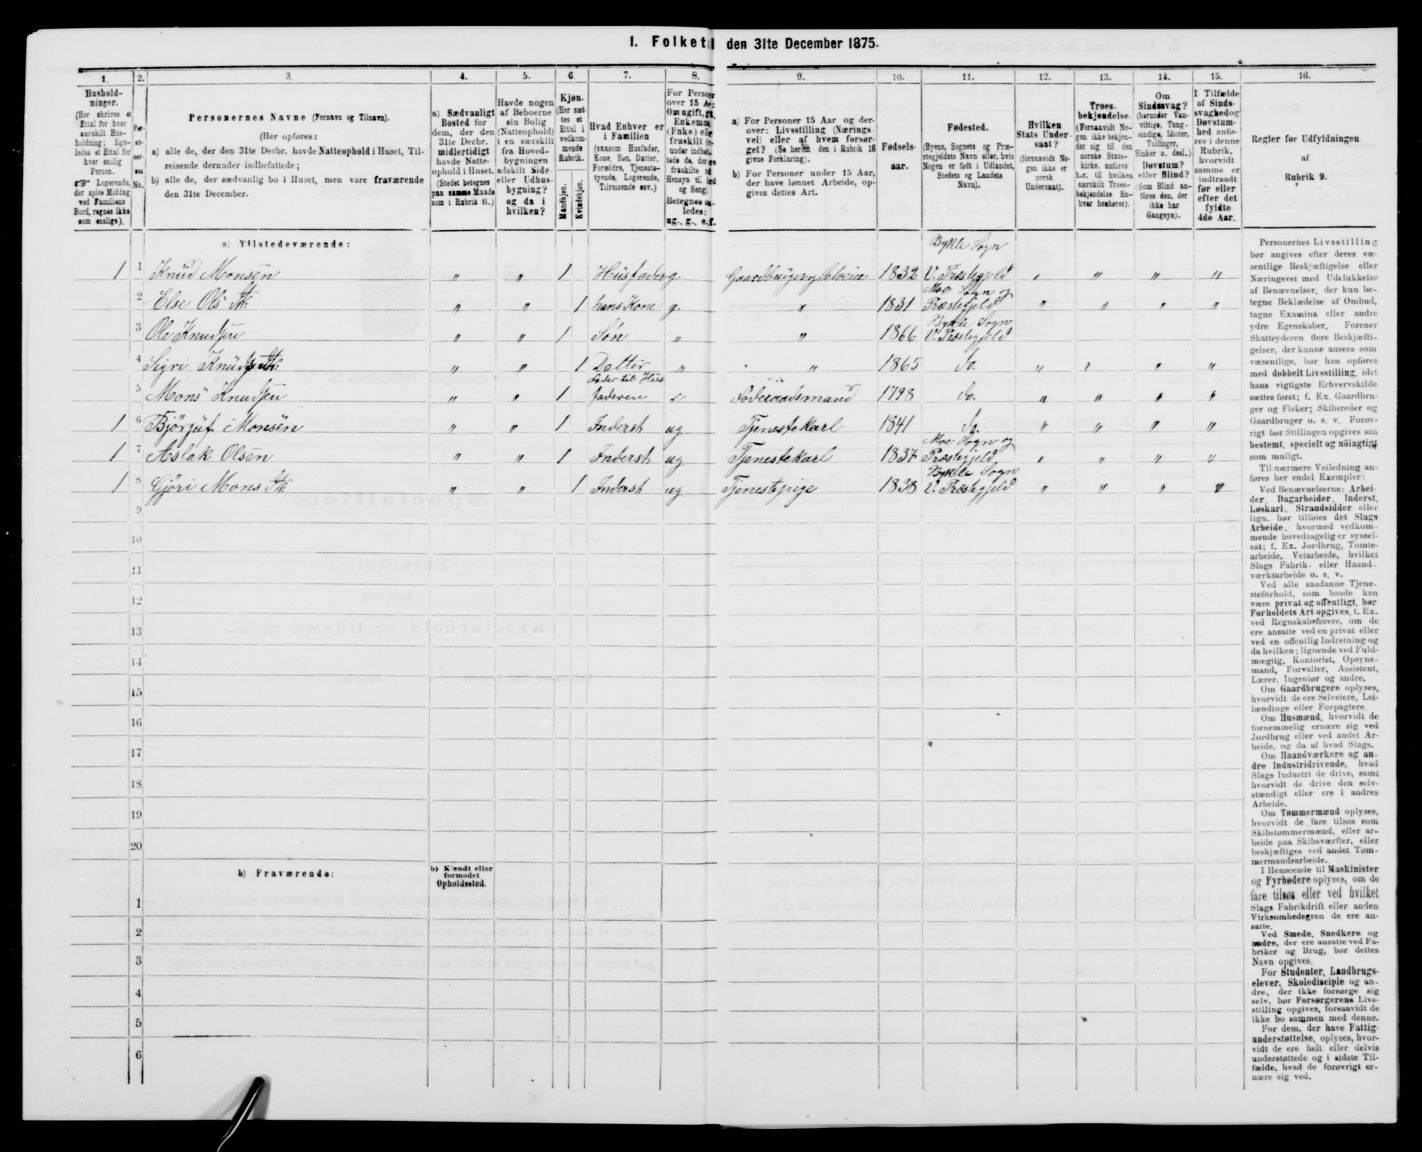 1. Folketal den 31te December 1875.
1. 2. 3. 4. 5. 6. 7. 8. 9. 10. 11. 12. 13. 14. 15. 16.
Hushold-
ninger.
(Her skrives et
Ettal for hver
særskilt Hus-
holdning; lige-
ledes et Ettal for
hver enslig
Person.
☞ Logerende,
der spise Middag
ved Familiens
Bord, regnes ikke
som enslige).
Per-
No.
Personernes Navne (Fornavn og Tilnavn).
(Her opføres:
a) alle de, der den 31te Decbr. havde Natteophold i Huset, Til-
reisende derunder indbefattede;
b) alle de, der sædvanlig bo i Huset, men vare fraværende
den 31te December.
a) Sædvanligt
Bosted for
dem, der den
31te Decbr.
midlertidigt
havde Natte-
ophold i Huset.
(Stedet betegnes
paa samme Maade
som i Rubrik 11.)
Havde nogen
af Beboerne
sin Bolig
(Natteophold)
i en særskilt
fra Hoved-
bygningen
adskilt Side-
eller Udhus-
bygning?
og da i
hvilken?
Kjøn.
(Her sæt-
tes et
Ettal i
vedkom-
mende
Rubrik.
Mandkjøn.
Kvindekjøn.
Hvad Enhver er
i Familien
(saasom Husfader,
Kone, Søn, Datter,
Forældre, Tjeneste-
tyende, Logerende,
Tilreisende osv.)
For Personer
over 15 Aar
Om ugift, gift,
Enkemand
(Enke) eller
fraskilt
Betegnes saa-
ledes:
ug., g., e., f.
a) For Personer 15 Aar og der-
over: Livsstilling (Nærings-
vei) eller af hvem forsør-
get? (Se herom den i Rubrik 16
givne Forklaring).
b) For Personer under 15 Aar,
der have lønnet Arbeide, op-
gives dettes Art.
Fødsels-
aar.
Fødested.
(Byens, Sognets og Præ-
stegjeldets Navn eller, hvis
Nogen er født i Udlandet,
Stedets og Landets
Navn).
Hvilken
Stats Under-
saat?
(forsaavidt No-
gen ikke er
norsk
Undersaat).
Troes-
bekjendelse.
(Forsaavidt No-
gen ikke bekjen-
der sig til den
norske Stats-
kirke, anføres
her, til hvilken
særskilt Troes-
bekjendelse En-
hver henhører).
Om
Sindssvag?
(herunder Van-
vittige, Tung-
sindige, Idioter,
Tullinger,
Sinker o. desl.)
Døvstum?
eller Blind?
(Som Blind an-
føres den, der
ikke har
Gangsyn).
I Tilfælde
af Sinds-
svaghed og
Døvstum-
hed anfø-
res i denne
Rubrik,
hvorvidt
samme er
indtraadt
før eller
efter det
fyldte
4de Aar.
Regler før Udfyldningen
af
Rubrik 9.
a) Tilstedeværende:
1 1 Knud Monsen " " 1 Husfader g. Gaardbruger, Selveier 1832 Bykle Sogn V. Præstegjeld " " " "
2 Else Ols Dtr. " " 1 hans Kone g. " 1831 Moe Sogn og Præstegjeld " " " "
3 Ole Knudsen " " 1 Søn " " 1866 Bykle Sogn V. Præstegjeld
4 Sigri Knuds Dtr. " " 1 Datter " " 1865 do. " " " "
5 Mons Knudsen " " 1 Fader til Hus faderen e Føderaadsmand 1798 do. " " " "
1 6 Bjørguf Monsen " " 1 Inderst ug Tjenestekarl 1841 do. " " " "
1 7 Aslak Olsen " " 1 Inderst ug Tjenestekarl 1837 Moe Sogn og Præstegjeld " " " "
1 8 Gjøri Mons Dtr. " " 1 Inderst ug Tjenestepige 1838 Bykle Sogn V. Præstegjeld " " " "
9
10
11
12
13
14
15
16
17
18
19
20
b) Fraværende:
b) Kjendt eller
formodet
Opholdssted.
1
2
3
4
5
6
Personernes Livsstilling
bør angives efter deres væ-
sentlige Beskjæftigelse eller
Næringsvei med Udelukkelse
af Benævnelser, der kun be-
tegne Beklædelse af Ombud,
tagne Examina eller andre
ydre Egenskaber. Forener
Skatteyderen flere Beskjæfti-
gelser, der kunne ansees som
væsentlige, bør han opføres
med dobbelt Livsstilling, idet
hans vigtigste Erhvervskilde
sættes først; f. Ex. Gaardbru-
ger og Fisker; Skibsreder og
Gaardbruger o. s. v. Forøv-
rigt bør Stillingen opgives saa
bestemt, specielt og nøiagtigt
som muligt.
Til nærmere Veiledning an-
føres her endel Exempler:
Ved Benævnelserne: Arbei-
der, Dagarbeider, Inderst,
Løskarl, Strandsidder eller
lign. bør tilføies det Slags
Arbeide, hvormed vedkom-
mende hovedsagelig er syssel-
sat; f. Ex. Jordbrug, Tomte-
arbeide, Veiarbeide, hvilket
Slags Fabrik- eller Haand-
værksarbeide o. s. v.
Ved alle saadanne Tjene-
steforhold, som baade kan
være privat og offentligt, bør
Forholdets Art opgives, f. Ex.
ved Regnskabsførere, om de
ere ansatte ved en privat eller
ved en offentlig Indretning og
da hvilken; lignende ved Fuld-
mægtig, Kontorist, Opsyns-
mand, Forvalter, Assistent,
Lærer, Ingeniør og andre.
Om Gaardbrugere oplyses,
hvorvidt de ere Selveiere, Lei-
lændinge eller Forpagtere.
Om Husmænd, hvorvidt de
fornemmelig ernære sig ved
Jordbrug eller ved andet Ar-
beide, og da af hvad Slags.
Om Haandværkere og an-
dre Industridrivende, hvad
Slags Industri de drive, samt
hvorvidt de drive den selv-
stændigt eller ere i andres
Arbeide.
Om Tømmermænd oplyses,
hvorvidt de fare tilsøs som
Skibstømmermænd, eller ar-
beide paa Skibsværfter, eller
beskjæftiges ved andet Tøm-
mermandsarbeide.
I Henseende til Maskinister
og Fyrbødere oplyses, om de
fare tilsøs eller ved hvilket
Slags Fabrikdrift eller anden
Virksomhedsgren de ere an-
satte.
Ved Smede, Snedkere og
andre, der ere ansatte ved Fa-
briker og Brug, bør dettes
Navn opgives.
For Studenter, Landbrugs-
elever, Skoledisciple og an-
dre, der ikke forsørge sig
selv, bør Forsørgerens Livs-
stilling opgives, forsaavidt de
ikke bo sammen med denne.
For dem, der have Fattig-
understøttelse, oplyses, hvor-
vidt de ere helt eller delvis
understøttede og i sidste Til-
fælde, hvad de forøvrigt er-
nære sig ved.